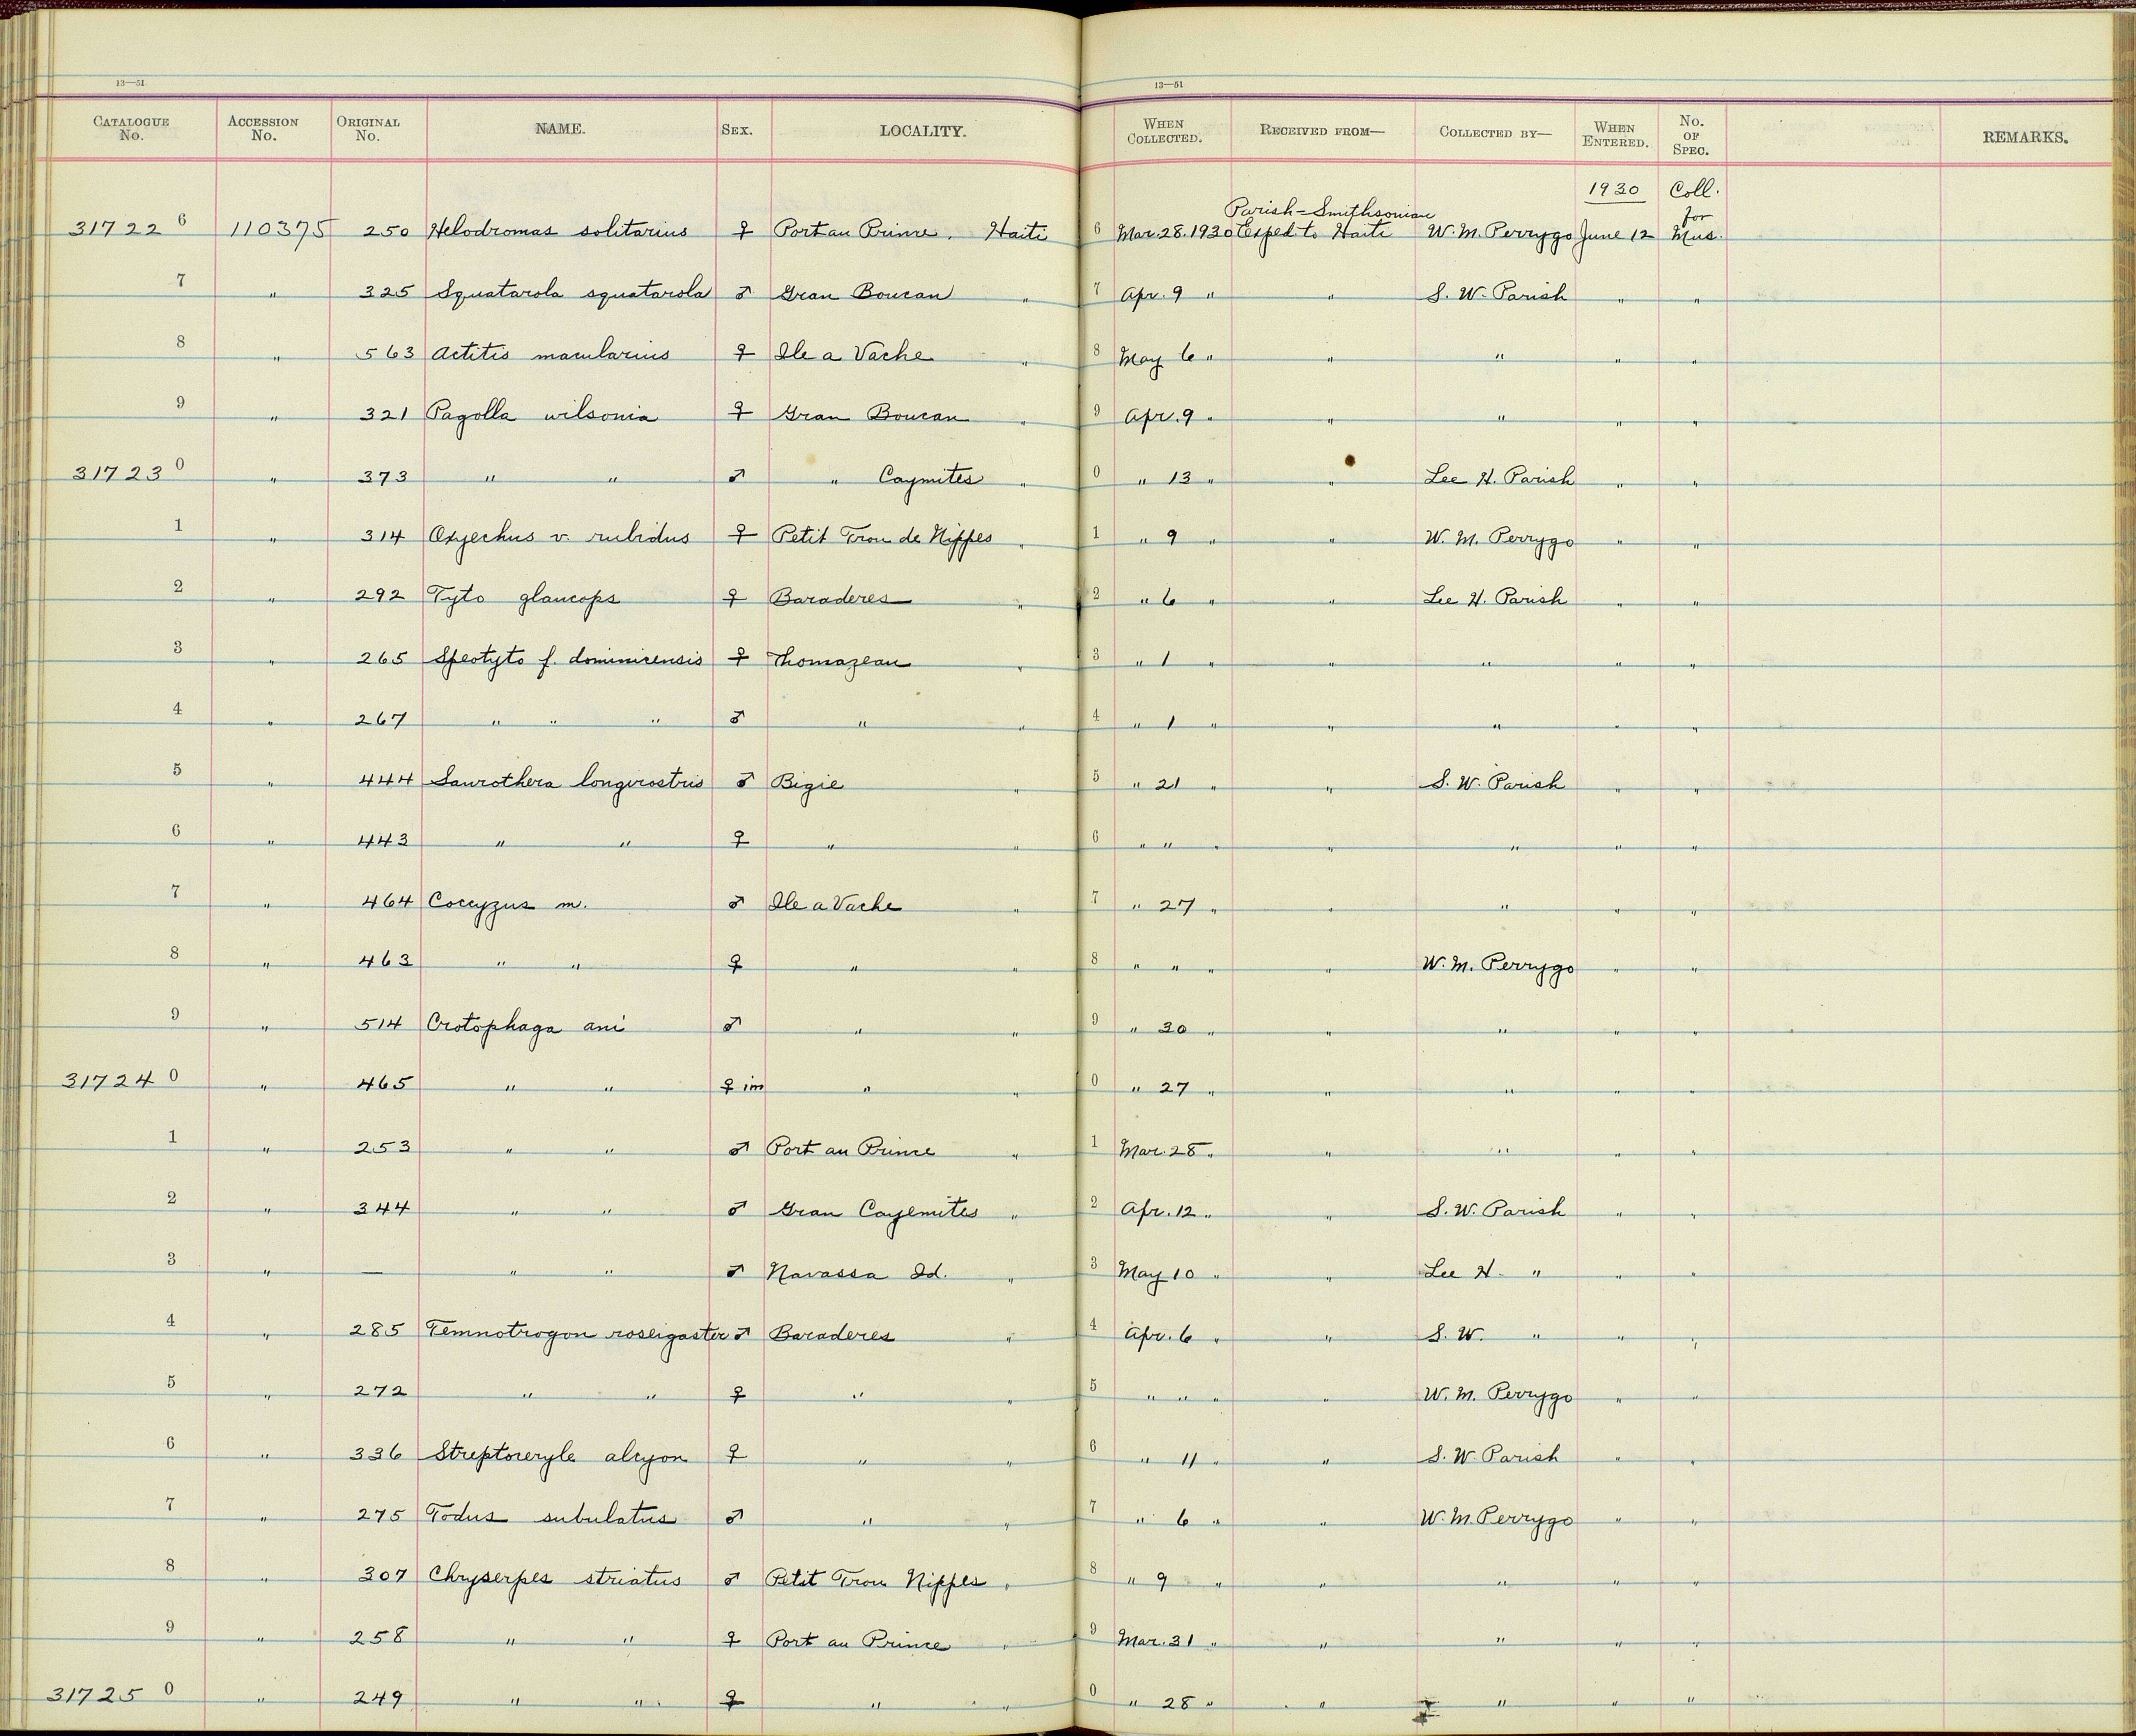 13—51
13—51
CATALOGUE No. ACCESSION No. ORIGINAL No. NAME. SEX. LOCALITY. WHEN COLLECTED. RECEIVED FROM— COLLECTED BY— WHEN ENTERED. No. OF SPEC. REMARKS.
1930 Coll. for
31722 6 110375 250 Helodromas solitarius ♀ Port au Prince, Haiti 6 Mar. 28. 1930 Parish-Smithsonian Exped. to Haiti W. M. Perrygo June 12 Mus.
7 " 325 Squatarola squatarola ♂ Gran Boucan " 7 Apr. 9 " " S. W. Parish " "
8 " 563 Actitis macularius ♀ Ile a Vache " 8 May 6 " " " " "
9 " 321 Pagolla wilsonia ♀ Gran Boucan " 9 Apr. 9 " " " " "
31723 0 " 373 " " ♂ " Caymites " 0 " 13 " " Lee H. Parish " "
1 " 314 Oxyechus v. rubidus ♀ Petit Trou de Nippes " 1 " 9 " " W. M. Perrygo " "
2 " 292 Tyto glaucops ♀ Baraderes " 2 " 6 " " Lee H. Parish " "
3 " 265 Speotyto f. dominicensis ♀ Thomazeau " 3 " 1 " " " " "
4 " 267 " " " ♂ " " 4 " 1 " " " " "
5 " 444 Saurothera longirostris ♂ Bigie " 5 " 21 " " S. W. Parish " "
6 " 443 " " ♀ " " 6 " " " " " " "
7 " 464 Coccyzus m. ♂ Ile a Vache " 7 " 27 " " " " "
8 " 463 " " ♀ " " 8 " " " " W. M. Perrygo " "
9 " 514 Crotophaga ani ♂ " " 9 " 30 " " " " "
31724 0 " 465 " " ♀ im " " 0 " 27 " " " " "
1 " 253 " " ♂ Port au Prince " 1 Mar. 28 " " " " "
2 " 344 " " ♂ Gran Cayemites " 2 Apr. 12 " " S. W. Parish " "
3 " — " " ♂ Navassa Id. " 3 May 10 " " Lee H. " " "
4 " 285 Temnotrogon roseigaster ♂ Baraderes " 4 Apr. 6 " " S. W. " " "
5 " 272 " " ♀ " " 5 " " " " W. M. Perrygo " "
6 " 336 Streptoceryle alcyon ♀ " " 6 " 11 " " S. W. Parish " "
7 " 275 Todus subulatus ♂ " " 7 " 6 " " W. M. Perrygo " "
8 " 307 Chryserpes striatus ♂ Petit Trou Nippes " 8 " 9 " " " " "
9 " 258 " " ♀ Port au Prince " 9 Mar. 31 " " " " "
31725 0 " 249 " " ♀ " " 0 " 28 " " " " "